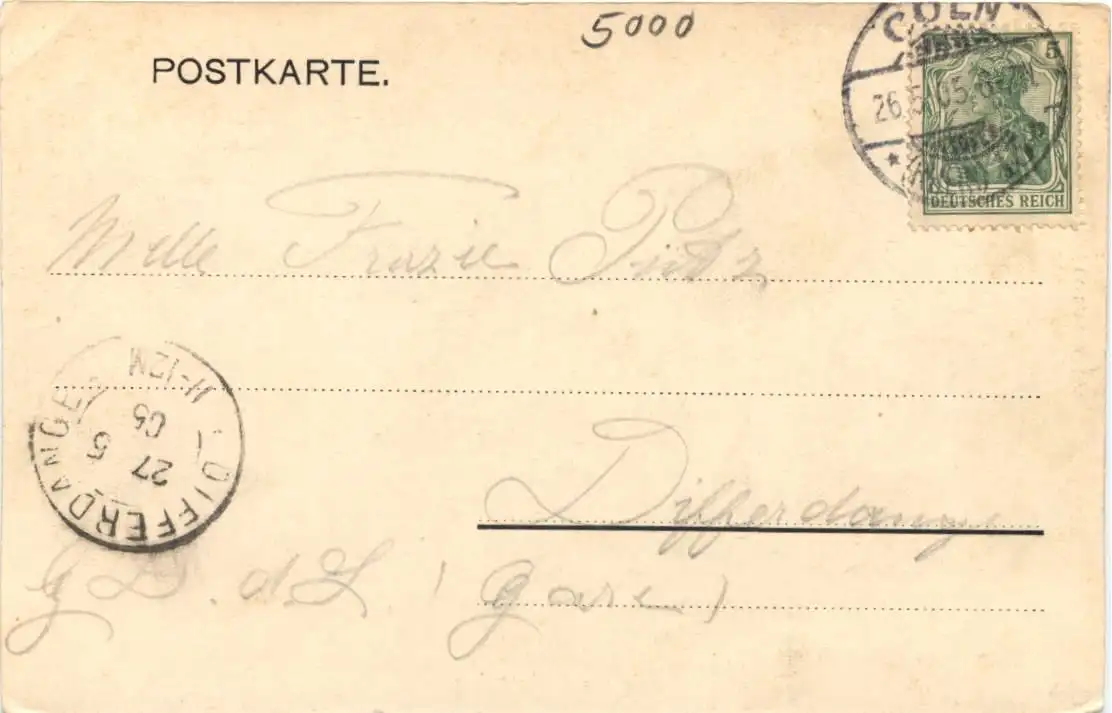 5000
POSTKARTE.
CÖLN
26.5.05.
5
DEUTSCHES REICH
Melle Frazie Pütz
DIFFERDANGE
27 5
05
11-12M
Differdange
G D. d L (Gare)